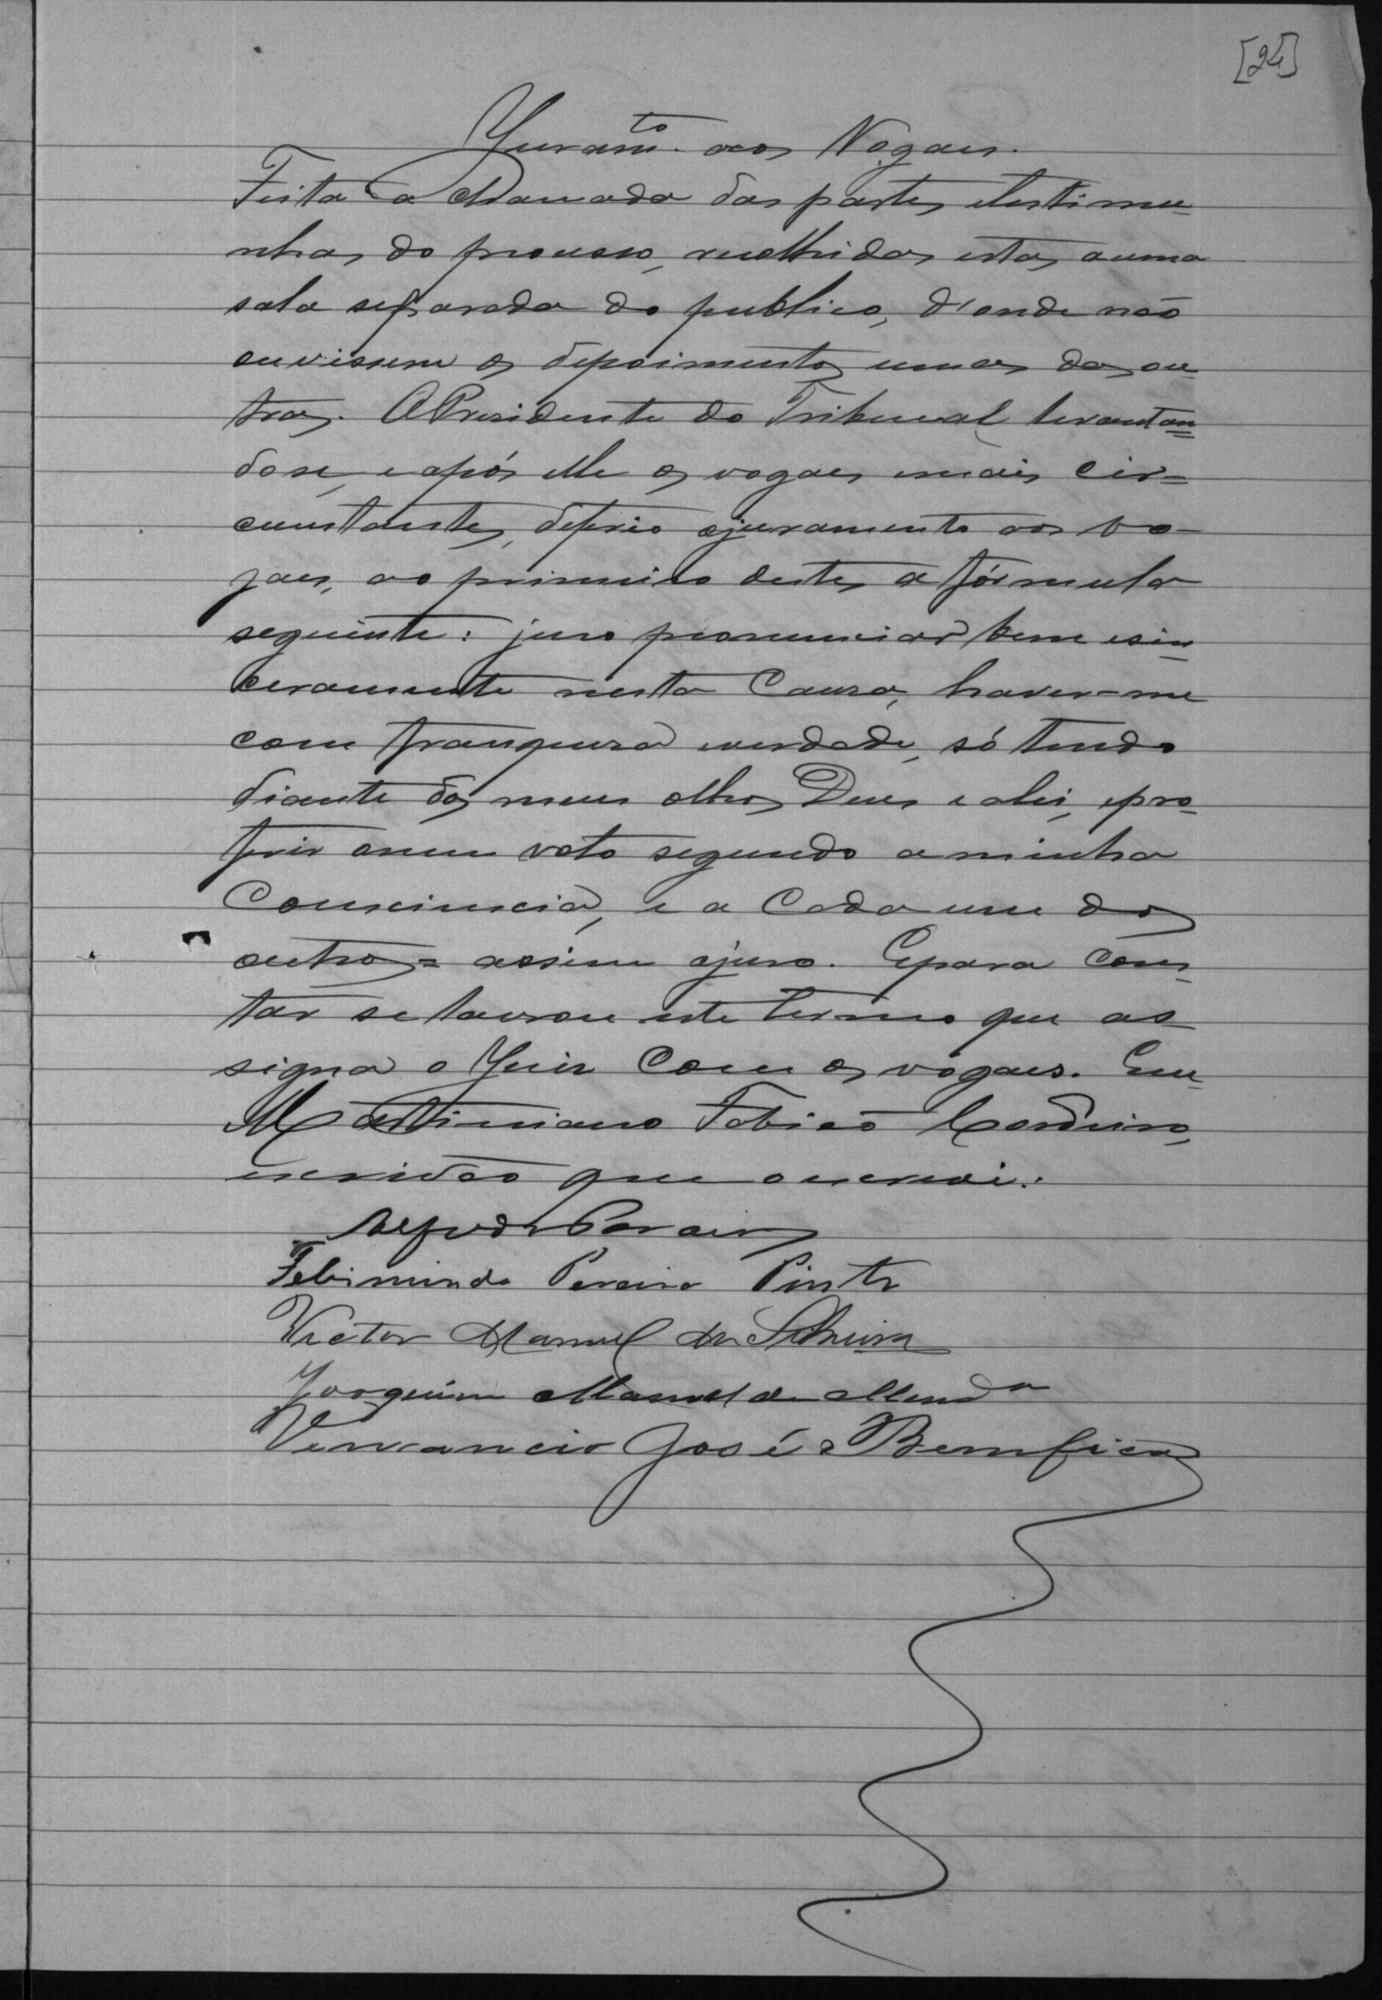 [24]
Juram.to aos Vogaes.
Feita a chamada das partes e testimu-
nhas do processo, recolhidas estas a uma
sala separada do publico, d'onde não
ouvissem os depoimentos umas das ou-
tras. O Presidente do Tribunal levantan-
do se, e após elle os vogaes e mais cir-
cunstantes, deferio o juramento aos vo-
gaes, ao primeiro destes a fórmula
seguinte: juro pronunciar bem e sin-
ceramente nesta Causa, haver-me
com franqueza e verdade, só tendo
diante dos meus olhos Deus e a lei, e pro-
ferir o meu voto segundo a minha
Consciencia, e a Cada um dos
outros = assim o juro. E para Cons-
tar se lavrou este termo que as-
signa o Juiz Com os vogaes. Eu
Martiniano Fabião Cordeiro,
escrivão que o escrevi.
Pereira Pinto
Victor Manuel da
Joaquim Manoel de
Venancio José Bemfica